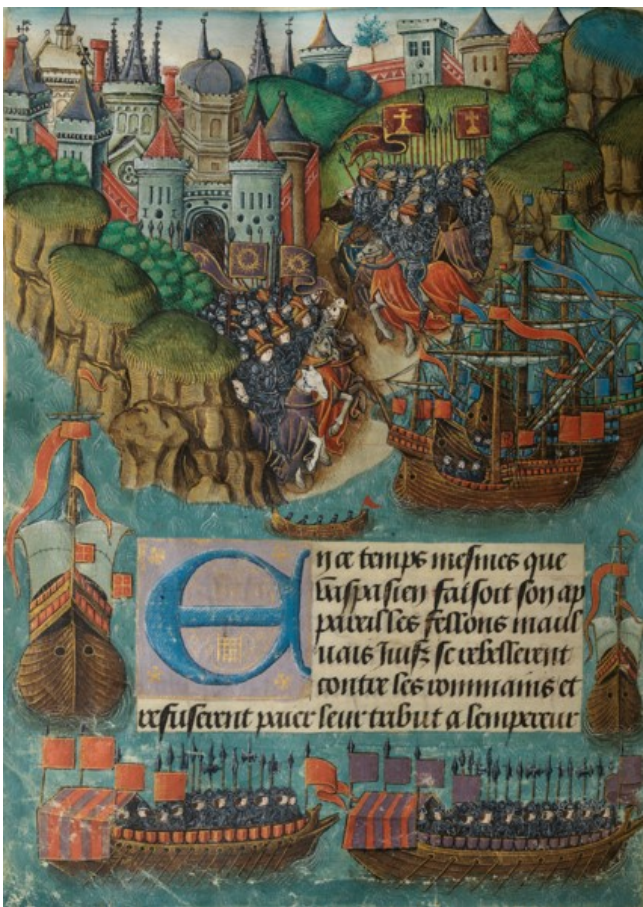 En ce temps mesmes que
vaspasien faisoit son ap
pareil les fellons maul
uais Juifz se rebellerent
contre les rommains et
refuserent paier leur tribut a lempereur